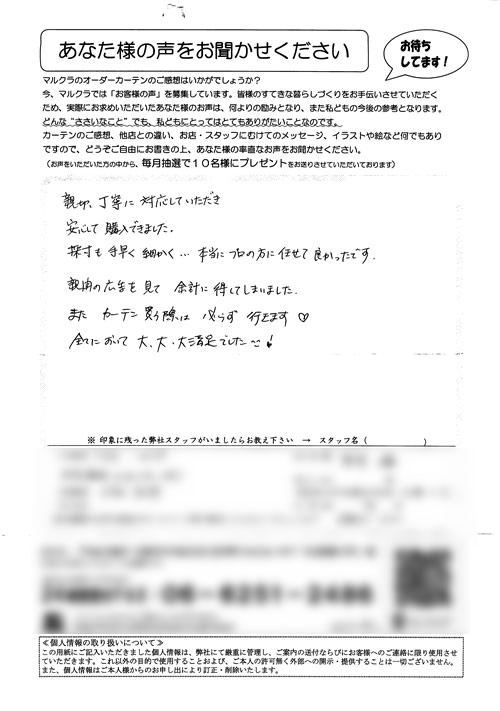 あなた様の声をお聞かせください
お待ち
してます！
マルクラのオーダーカーテンのご感想はいかがでしょうか？
今、マルクラでは「お客様の声」を募集しています。皆様のすてきな暮らしづくりをお手伝いさせていただく
ため、実際にお求めいただいたあなた様のお声は、何よりの励みとなり、また私どもの今後の参考となります。
どんな“ささいなこと”でも、私どもにとってはとてもありがたいことなのです。
カーテンのご感想、他店との違い、お店・スタッフにむけてのメッセージ、イラストや絵など何でもあり
ですので、どうぞご自由にお書きの上、あなた様の率直なお声をお聞かせください。
（お声をいただいた方の中から、毎月抽選で１０名様にプレゼントをお送りさせていただいております）
親切、丁寧に対応していただき
安心して購入できました。
採寸も手早く細かく…本当にプロの方に任せて良かったです。
の広告を見て 余計に得してしまいました。
また カーテン買う際は 必ず 行きます♡
全てにおいて 大、大・大満足でした
※ 印象に残った弊社スタッフがいましたらお教え下さい → スタッフ名（ ）
≪個人情報の取り扱いについて≫
この用紙にご記入いただきました個人情報は、弊社にて厳重に管理し、ご案内の送付ならびにお客様へのご連絡に限り使用させ
ていただきます。これ以外の目的で使用することおよび、ご本人の許可無く外部への開示・提供することは一切ございません。
また、個人情報はご本人様からのお申し出により訂正・削除いたします。